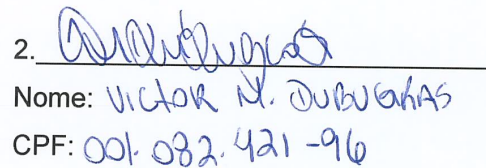 2.
Nome: VICTOR M. DUBUGRAS
CPF: 001.082.421-96